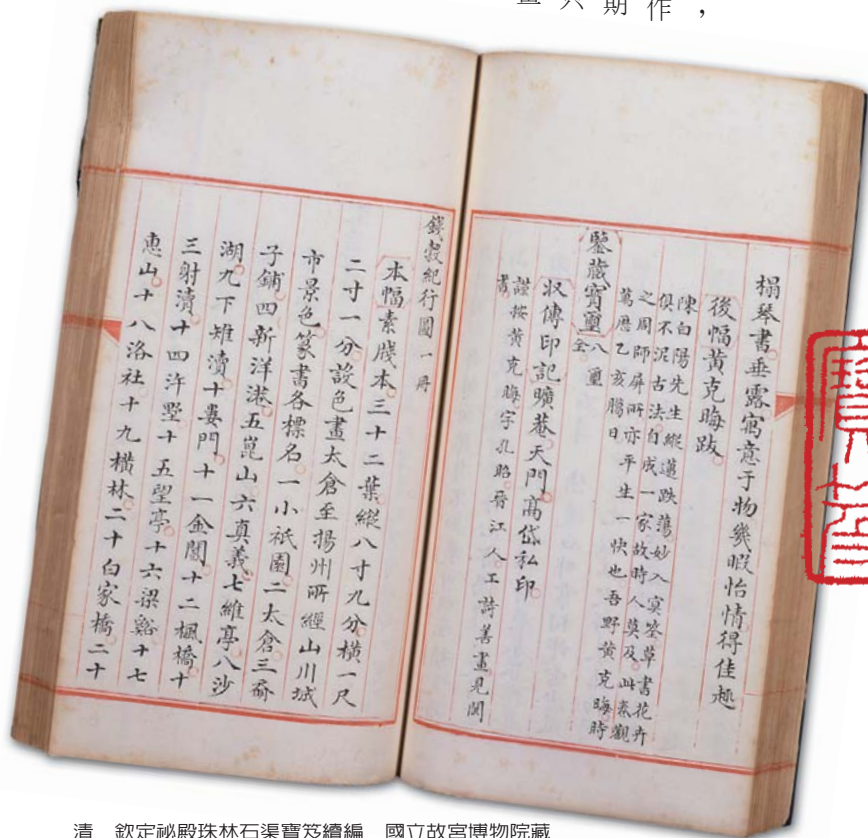 作，
期
六
榻琴書垂露寓意于物幾暇怡情得佳趣
後幅黃克晦跋
陳白陽先生縱邁跌蕩妙入冥筌草書花卉
俱不泥古法自成一家故時人莫及此卷觀
之周師屏所亦平生一快也吾野黃克晦時
萬曆乙亥臈日
鑒藏寶璽八璽
全
收傳印記曠菴天門高岱私印
謹按黃克晦字孔昭晉江人工詩善畫見閩
書
錢穀紀行圖一冊
本幅素牋本三十二葉縱八寸九分橫一尺
二寸一分設色畫太倉至揚州所經山川城
市景色篆書各標名一小祇園二太倉三
子鋪四新洋港五崑山六真義七維亭八沙
湖九下雉瀆十婁門十一金閶十二楓橋十
三射瀆十四滸墅十五望亭十六梁谿十七
惠山十八洛社十九橫林二十白家橋二十
清　欽定祕殿珠林石渠寶笈續編　國立故宮博物院藏